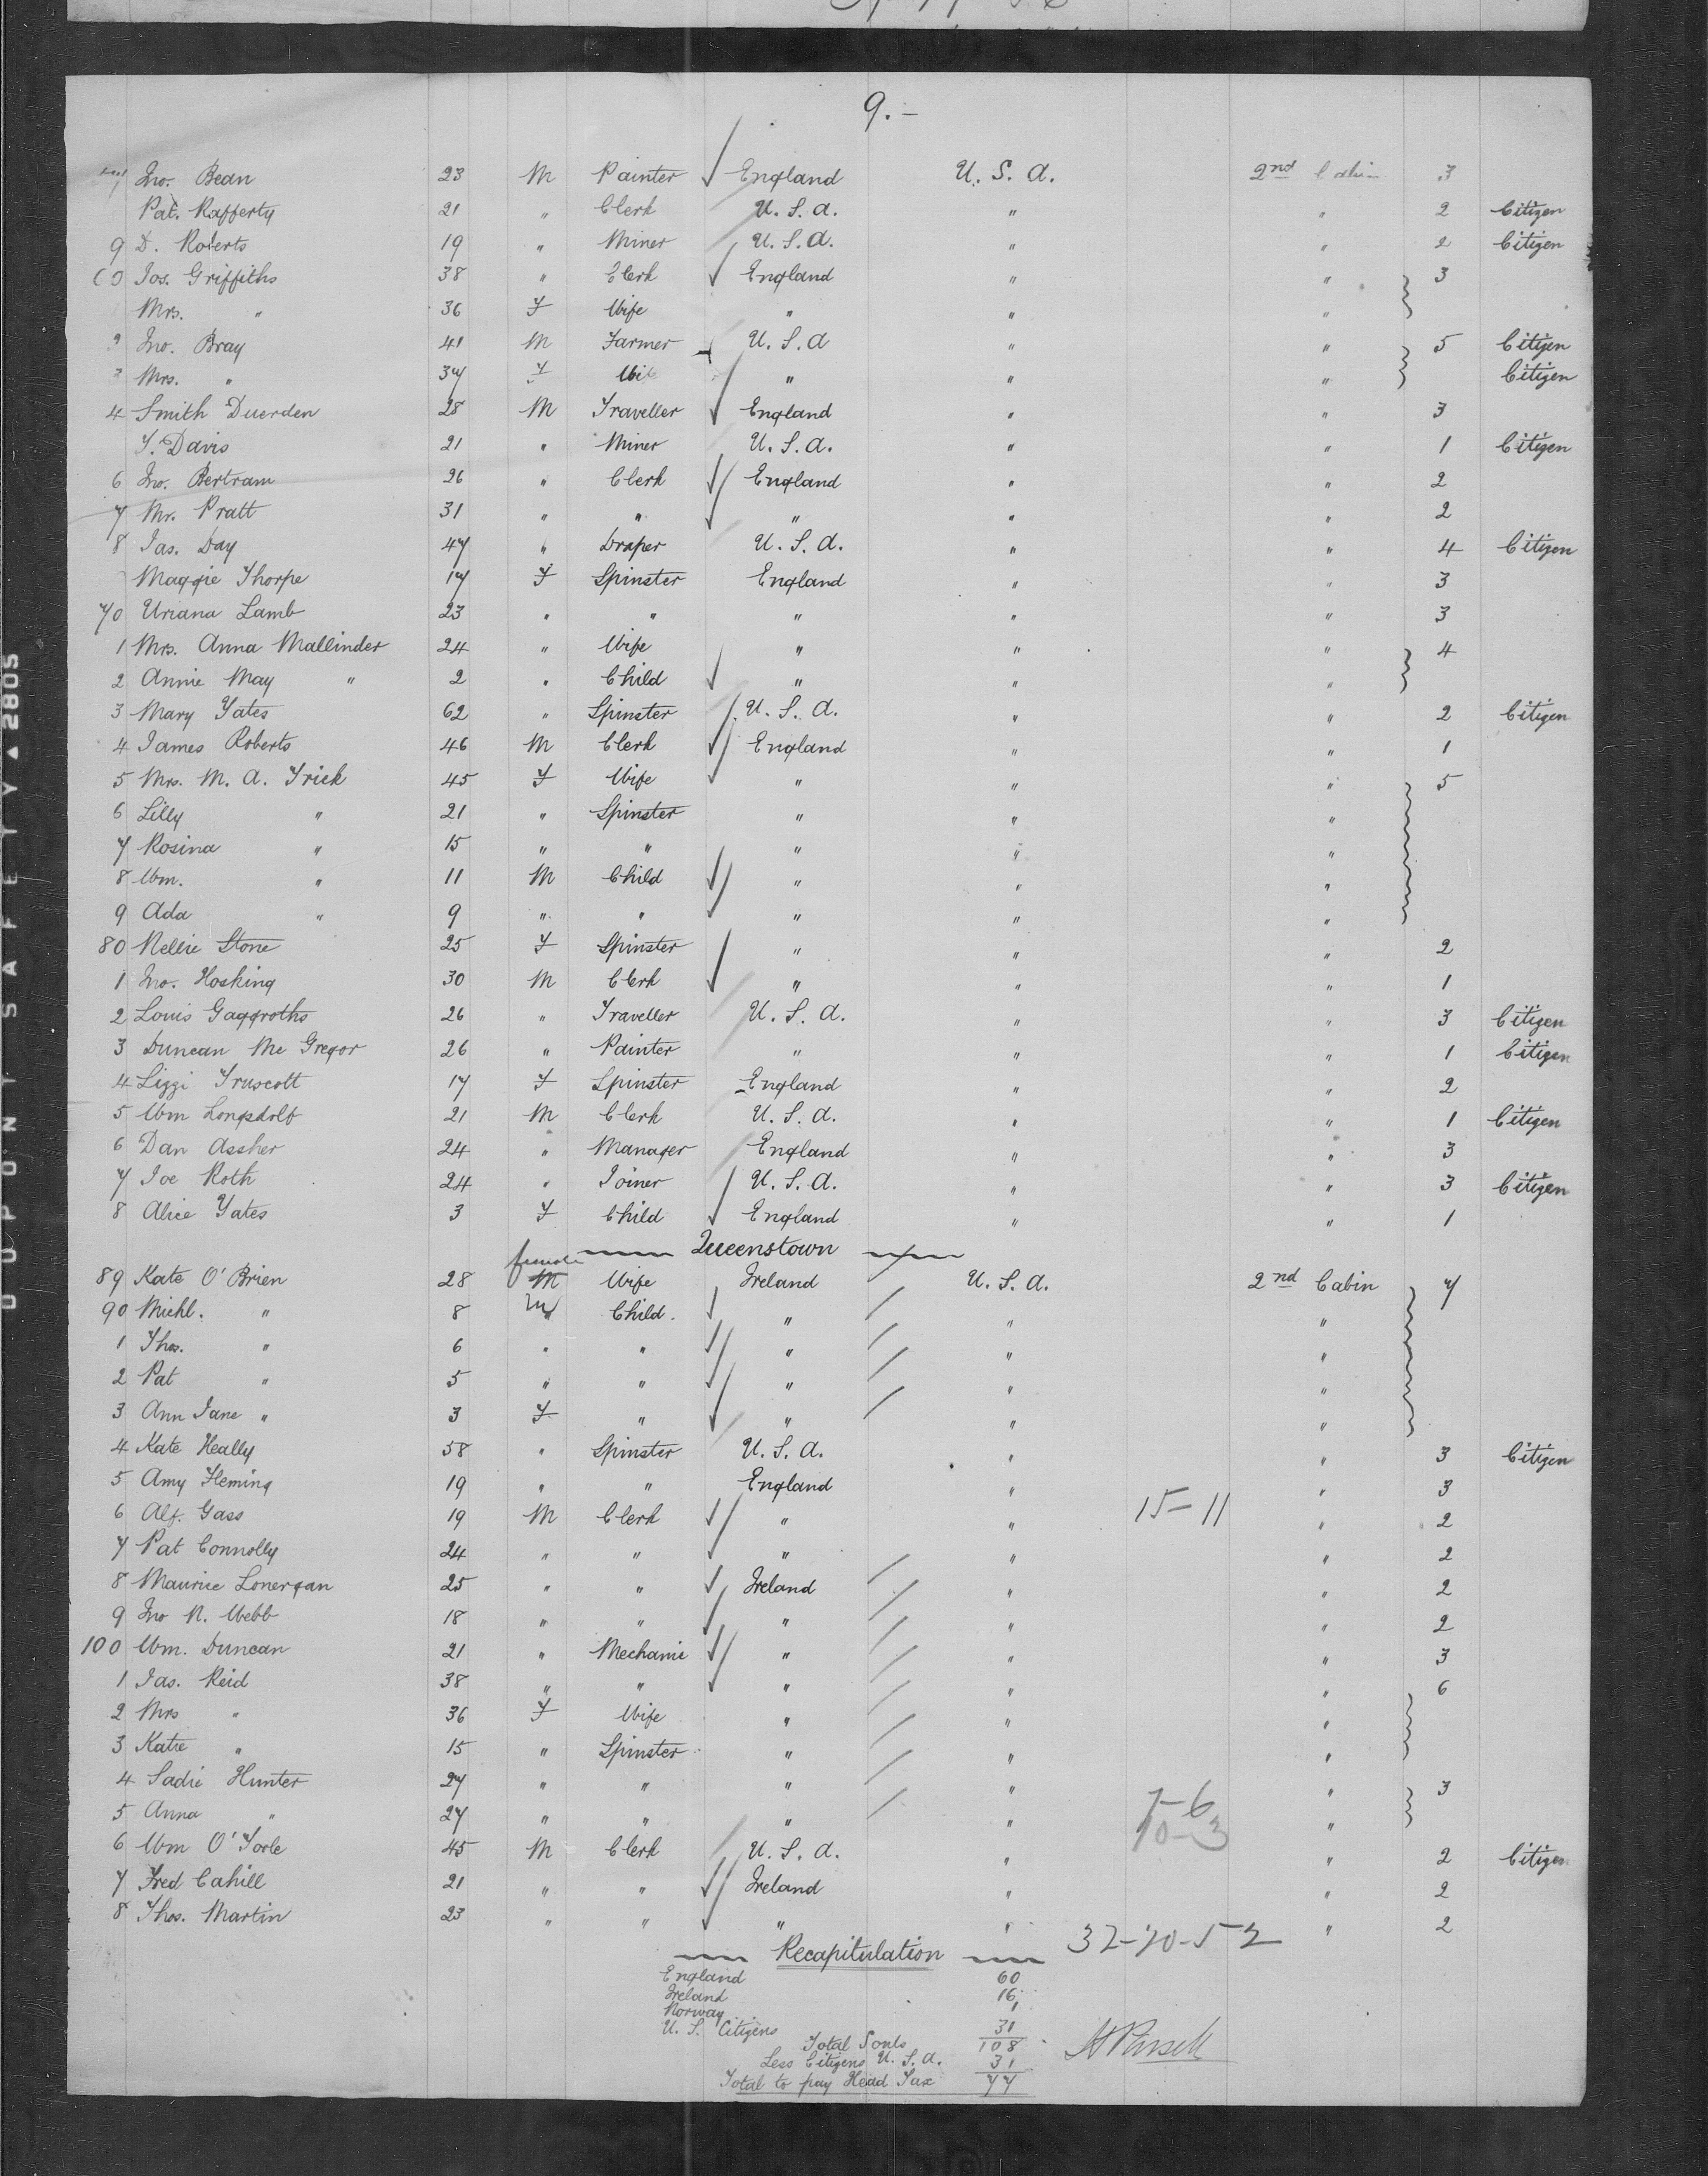 9.-
7 Jno. Bean 23 M Painter England U. S. A. 2nd Cabin 3
Pat. Rafferty 21 " Clerk U. S. A. " " 2 Citizen
9 D. Roberts 19 " Miner U. S. A. " " 2 Citizen
60 Jos. Griffiths 38 " Clerk England " " 3
Mrs. " 36 F Wife " " "
2 Jno. Bray 41 M Farmer U. S. A " " 5 Citizen
3 Mrs. " 37 F Wife " " " Citizen
4 Smith Duerden 28 M Traveller England " " 3
T. Davis 21 " Miner U. S. A. " " 1 Citizen
6 Jno. Bertram 26 " Clerk England " " 2
7 Mr. Pratt 31 " " " " " 2
8 Jas. Day 47 " Draper U. S. A. " " 4 Citizen
Maggie Thorpe 17 F Spinster England " " 3
70 Uriana Lamb 23 " " " " " 3
1 Mrs. Anna Mallinder 24 " Wife " " " 4
2 Annie May " 2 " Child " " "
3 Mary Yates 62 " Spinster U. S. A. " " 2 Citizen
4 James Roberts 46 M Clerk England " " 1
5 Mrs. M. A. Trick 45 F Wife " " " 5
6 Lilly " 21 " Spinster " " "
7 Rosina " 15 " " " " "
8 Wm. " 11 M Child " " "
9 Ada " 9 " " " " "
80 Nellie Stone 25 F Spinster " " " 2
1 Jno. Hosking 30 M Clerk " " " 1
2 Louis Gaggroths 26 " Traveller U. S. A. " " 3 Citizen
3 Duncan Mc Gregor 26 " Painter " " " 1 Citizen
4 Lizzi Truscott 17 F Spinster England " " 2
5 Wm Longsdolf 21 M Clerk U. S. A. " " 1 Citizen
6 Dan Assher 24 " Manager England " " 3
7 Joe Roth 24 " Joiner U. S. A. " " 3 Citizen
8 Alice Yates 3 F Child England " " 1
Queenstown
female
89 Kate O'Brien 28 M Wife Ireland U. S. A. 2nd Cabin 7
90 Michl. " 8 M Child. " " "
1 Thos. " 6 " " " " "
2 Pat " 5 " " " " "
3 Ann Jane " 3 F " " " "
4 Kate Heally 58 " Spinster U. S. A. " " 3 Citizen
5 Amy Fleming 19 " " England " " 3
6 Alf. Gass 19 M Clerk " " 15-11 " 2
7 Pat Connolly 24 " " " " " 2
8 Maurice Lonergan 25 " " Ireland " " 2
9 Jno N. Webb 18 " " " " " 2
100 Wm. Duncan 21 " Mechanic " " " 3
1 Jas. Reid 38 " " " " " 6
2 Mrs " 36 F Wife " " "
3 Katie " 15 " Spinster " " "
4 Sadie Hunter 27 " " " " " 3
5 Anna " 27 " " " " 7-6 "
10-3
6 Wm O'Toole 45 M Clerk U. S. A. " " 2 Citizen
7 Fred Cahill 21 " " Ireland " " 2
8 Thos. Martin 23 " " " " " 2
Recapitulation 32-20-52
England 60
Ireland 16
Norway 1
U. S. Citizens 31
Total Souls 108
Less Citizens U. S. A. 31
Total to pay Head Tax 77
DUPONT SAFETY ▲ 2805